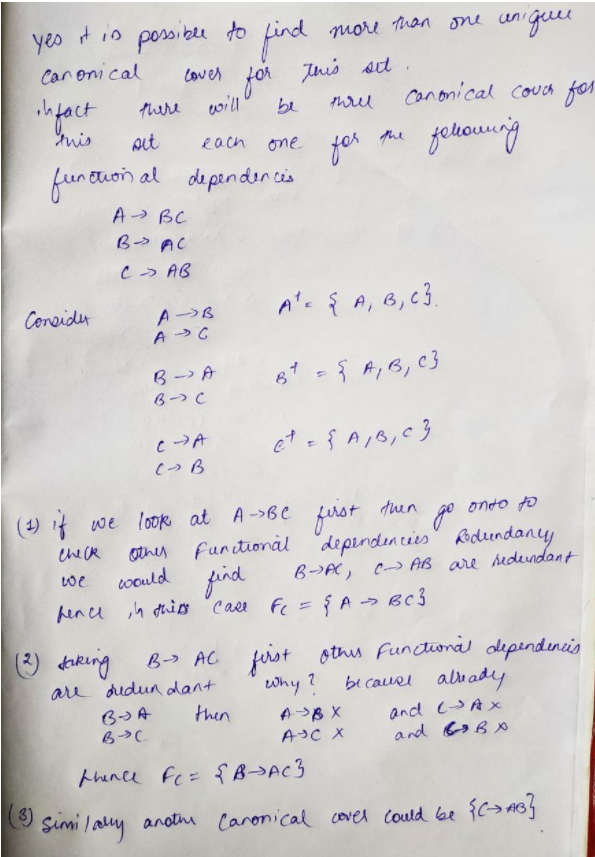 yes it is possible to find more than one unique
canonical cover for this set.
infact there will be three canonical cover for
this set each one for the following
functional dependencies
A → BC
B → AC
C → AB
Consider A → B A⁺ = { A, B, C}.
A → C
B → A B⁺ = { A, B, C}
B → C
C → A C⁺ = { A, B, C}
C → B
(1) if we look at A → BC first then go onto to
check other Functional dependencies Redundancy
we would find B → AC, C → AB are redundant
hence in this case Fc = { A → BC}
(2) taking B → AC first other Functional dependencies
are redundant why? because already
B → A then A → B X and C → A X
B → C A → C X and C → B X
hence Fc = { B → AC}
(3) Similarly another Canonical cover could be {C → AB}